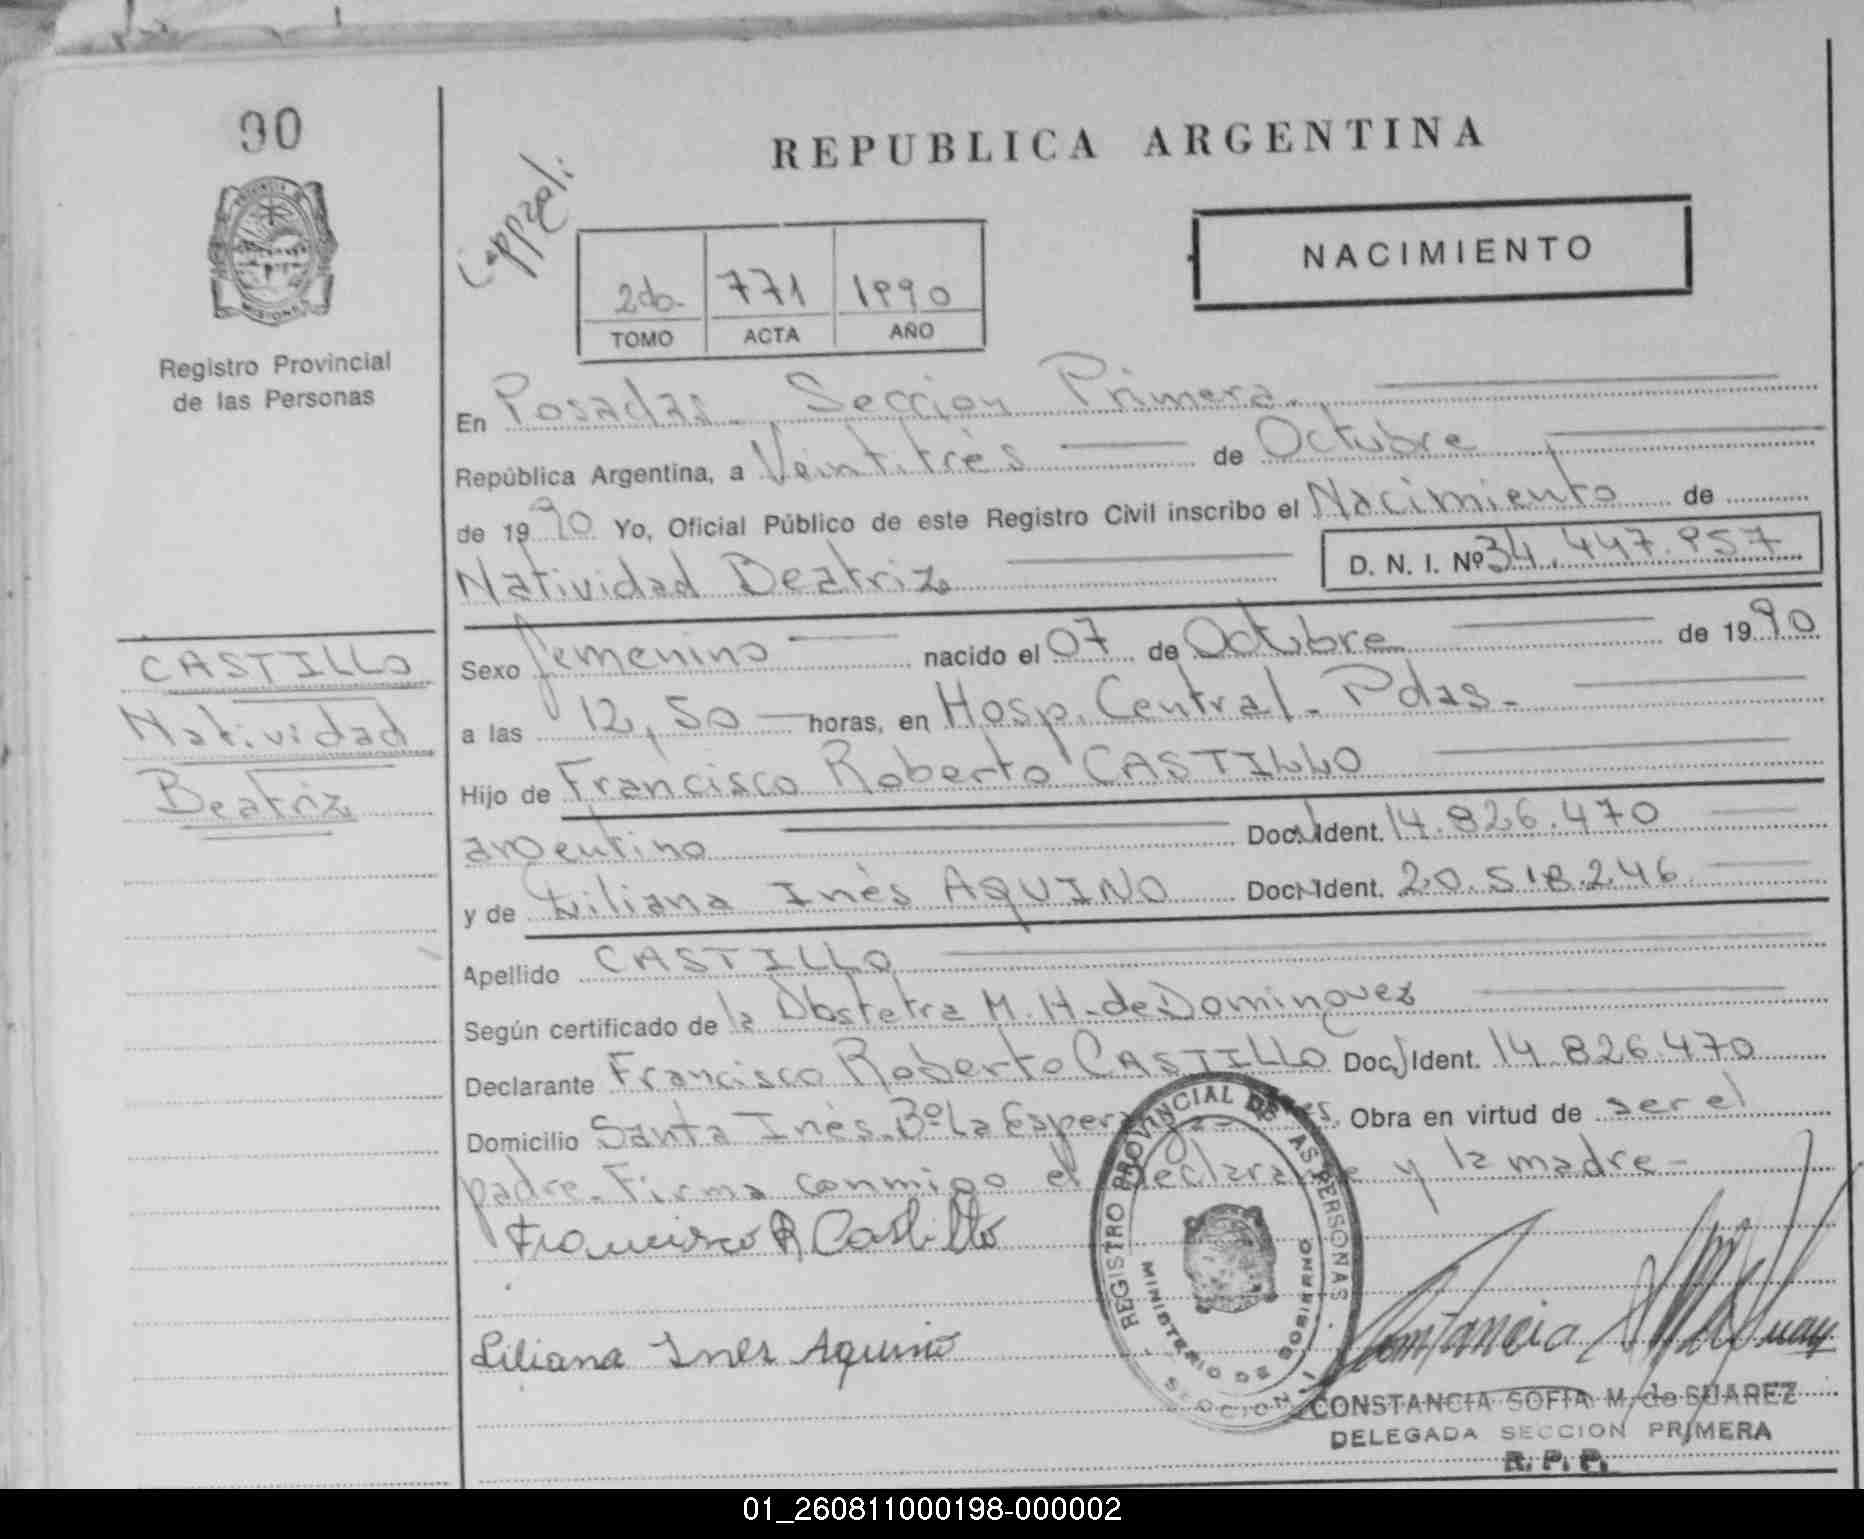 90
REPUBLICA ARGENTINA
NACIMIENTO
2do. 771 1990
TOMO ACTA AÑO
Registro Provincial
de las Personas
En Posadas - Sección Primera.
República Argentina, a Veintitrés de Octubre
de 1990 Yo, Oficial Público de este Registro Civil inscribo el Nacimiento de
Natividad Beatriz D. N. I. Nº 34.447.957
CASTILLO
Natividad
Beatriz
Sexo femenino nacido el 07 de Octubre de 1990
a las 12,50 horas, en Hosp. Central - Pdas -
Hijo de Francisco Roberto CASTILLO
argentino Doc. Ident. 14.826.470
y de Liliana Inés AQUINO Doc. Ident. 20.518.246
Apellido CASTILLO
Según certificado de la Obstetra M. H. de Dominguez
Declarante Francisco Roberto CASTILLO Doc. Ident. 14.826.470
Domicilio Santa Inés - Bº La Obra en virtud de ser el
padre - Firma conmigo el declarante y la madre -
Francisco R Castillo
Liliana Ines Aquino
REGISTRO PROVINCIAL DE LAS PERSONAS
MINISTERIO DE GOBIERNO
CONSTANCIA SOFIA M. de SUAREZ
DELEGADA SECCION PRIMERA
R. P. P.
01_260811000198-000002